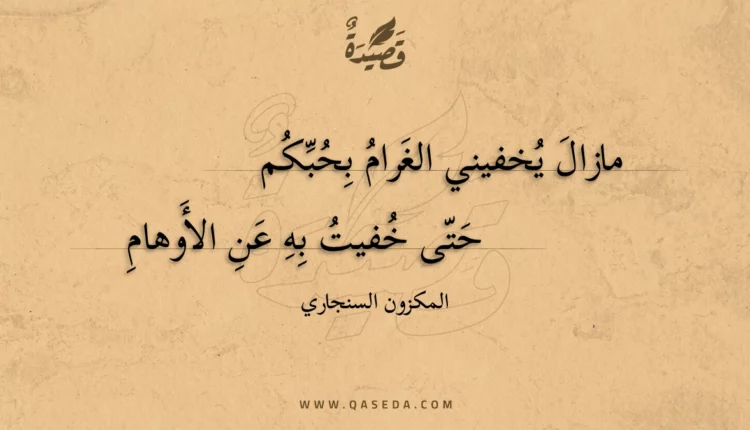 قَصِيْدَةٌ
مازالَ يُخفيني الغَرامُ بِحُبِّكُم
حَتّى خُفيتُ بِهِ عَنِ الأَوهامِ
المكزون السنجاري
WWW.QASEDA.COM